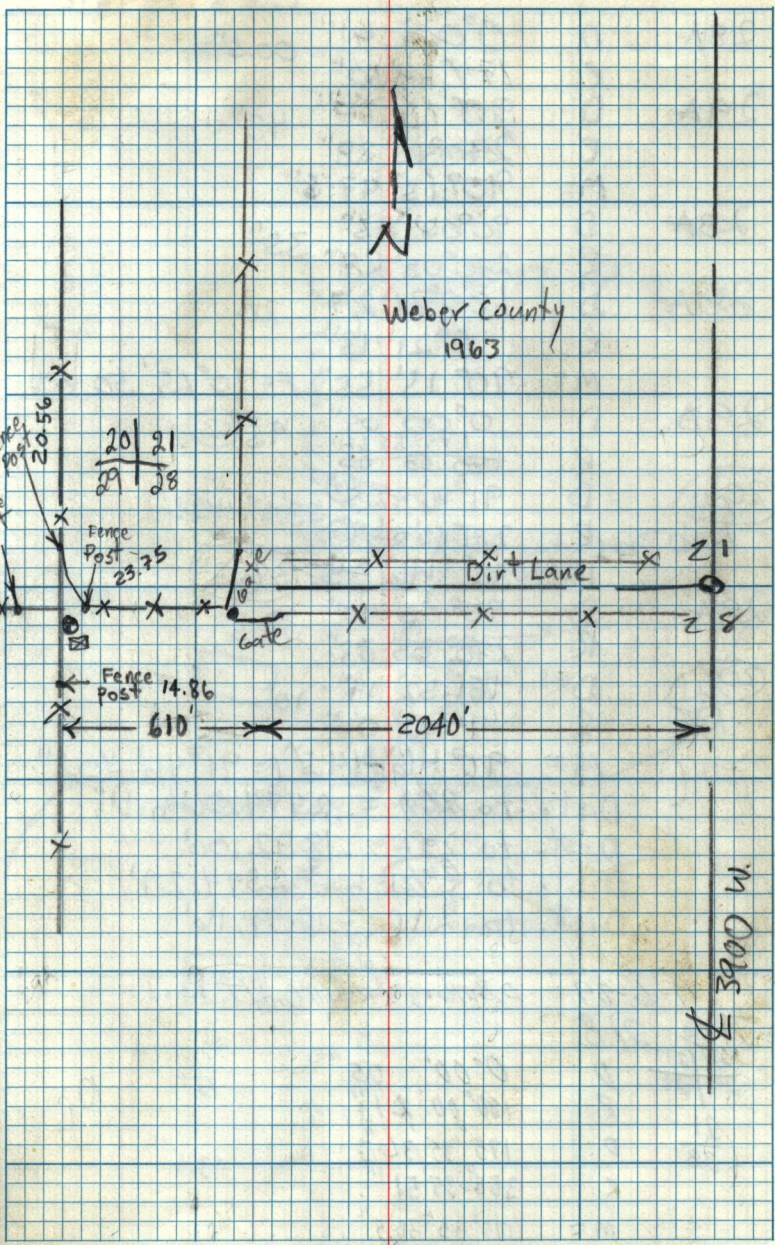 N
Weber County
1963
20.56
Post
20 | 21
29 | 28
Fence
Post
23.75
Gate
Dirt Lane
21
Gate
28
Fence
Post 14.86
610'
2040'
℄ 3900 W.